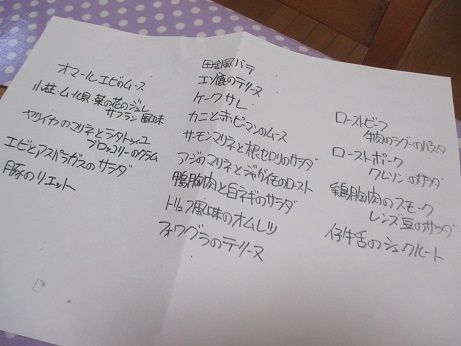 オマールエビのムース
小柱・ムール貝・菜の花のジュレ
サフラン風味
ヤリイカのマリネとラタトゥイユ
ブロッコリーのクラム
エビとアスパラガスのサラダ
豚のリエット
田舎風パテ
のテリーヌ
ケークサレ
カニと赤ピーマンのムース
サーモンマリネと根セロリのサラダ
アジのマリネとジャガイモのロースト
鴨胸肉と白ネギのサラダ
トリュフ風味のオムレツ
フォワグラのテリーヌ
ローストビーフ
牛肉のラグーのパスタ
ローストポーク
クレソンのサラダ
鶏胸肉のスモーク
レンズ豆のサラダ
仔牛舌のシュークルート